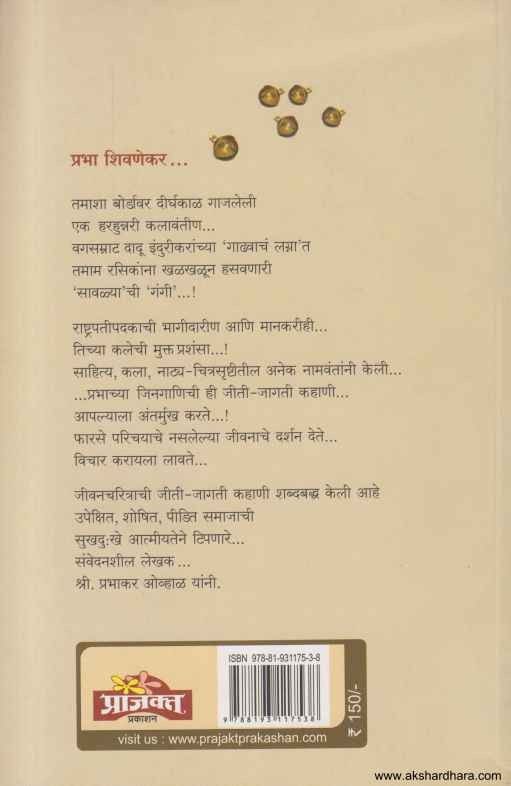 प्रभा शिवणेकर...
तमाशा बोर्डावर दीर्घकाळ गाजलेली
एक हरहुन्नरी कलावंतीण...
वगसम्राट दादू इंदुरीकरांच्या 'गाढवाचं लग्ना'त
तमाम रसिकांना खळखळून हसवणारी
'सावळ्या'ची 'गंगी'...!
राष्ट्रपतीपदकाची भागीदारीण आणि मानकरीही...
तिच्या कलेची मुक्त प्रशंसा...!
साहित्य, कला, नाट्य-चित्रसृष्टीतील अनेक नामवंतांनी केली...
...प्रभाच्या जिनगाणिची ही जीती-जागती कहाणी...
आपल्याला अंतर्मुख करते...!
फारसे परिचयाचे नसलेल्या जीवनाचे दर्शन देते...
विचार करायला लावते...
जीवनचरित्राची जीती-जागती कहाणी शब्दबद्ध केली आहे
उपेक्षित, शोषित, पीडित समाजाची
सुखदुःखे आत्मीयतेने टिपणारे...
संवेदनशील लेखक...
श्री. प्रभाकर ओव्हाळ यांनी.
ISBN 978-81-931175-3-8
प्राजक्त
प्रकाशन
9 788193 117538
₹ 150/-
visit us : www.prajaktprakashan.com
www.akshardhara.com